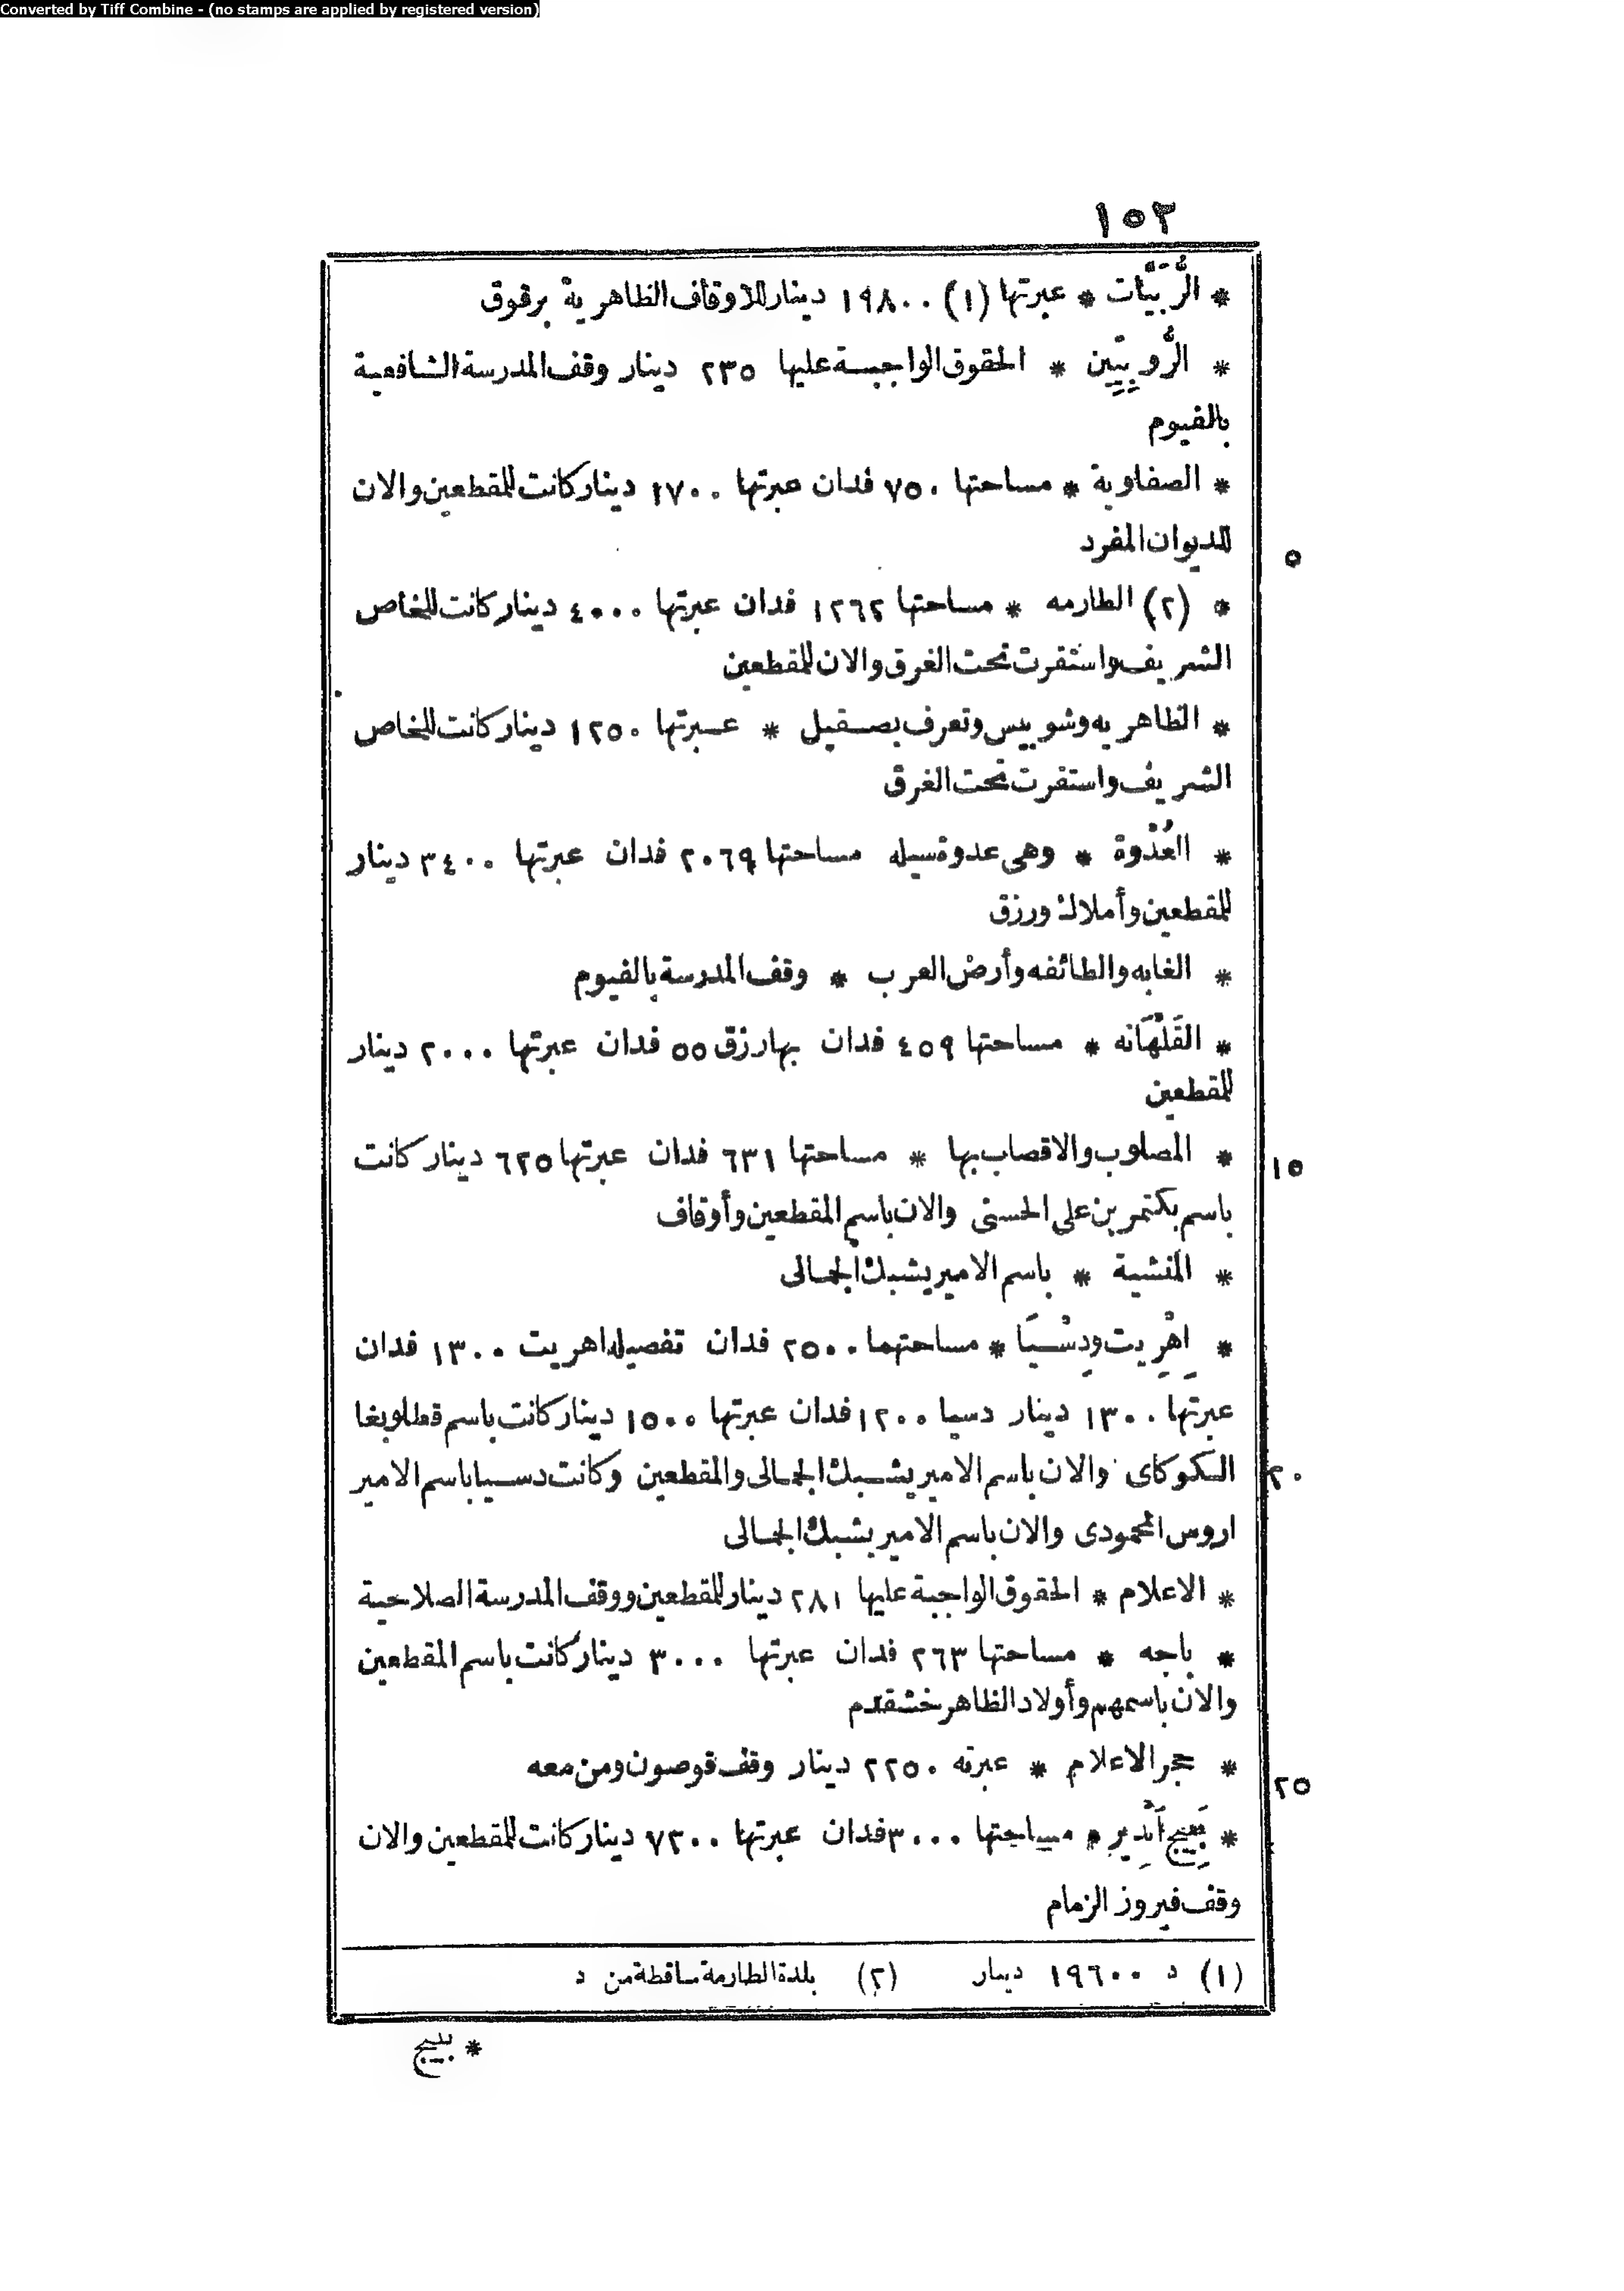 Converted by Tiff Combine - (no stamps are applied by registered version)
١٥٢
* الرُّبَيَّات * عبرتها (١) ١٩٨٠٠ دينار للاوقاف الظاهرية برقوق
* الرُّوبِيِّين * الحقوق الواجبة عليها ٢٣٥ دينار وقف المدرسة الشافعية
بالفيوم
* الصفاوية * مساحتها ٧٥٠ فدان عبرتها ١٧٠٠ دينار كانت للمقطعين والان
للديوان المفرد
٥
* (٢) الطارمه * مساحتها ١٢٦٢ فدان عبرتها ٤٠٠٠ دينار كانت للخاص
الشريف واستقرت تحت الغرق والان للمقطعين
* الظاهريه وشوبيس وتعرف بصقيل * عبرتها ١٢٥٠ دينار كانت للخاص
الشريف واستقرت تحت الغرق
* العُدْوة * وهى عدوة سيله مساحتها ٢٠٦٩ فدان عبرتها ٣٤٠٠ دينار
للمقطعين وأملاك ورزق
* الغابه والطائفه وأرض العرب * وقف المدرسة بالفيوم
* القَلْهَانه * مساحتها ٤٥٩ فدان بها رزق ٥٥ فدان عبرتها ٢٠٠٠ دينار
للمقطعين
* المصلوب والاقصاب بها * مساحتها ٦٣١ فدان عبرتها ٦٢٥ دينار كانت
١٥
باسم بكتمر بن على الحسنى والان باسم المقطعين وأوقاف
* المنشية * باسم الامير يشبك الجمالى
* اِهْرِيت ودِسْيَا * مساحتهما ٢٥٠٠ فدان تفصيله اهريت ١٣٠٠ فدان
عبرتها ١٣٠٠ دينار دسيا ١٢٠٠ فدان عبرتها ١٥٠٠ دينار كانت باسم قطلوبغا
الكوكاى والان باسم الامير يشبك الجمالى والمقطعين وكانت دسيا باسم الامير
٢٠
اروس المحمودى والان باسم الامير يشبك الجمالى
* الاعلام * الحقوق الواجبة عليها ٢٨١ دينار للمقطعين ووقف المدرسة الصلاحية
* باجه * مساحتها ٢٦٣ فدان عبرتها ٣٠٠٠ دينار كانت باسم المقطعين
والان باسمهم وأولاد الظاهر خشقدم
* حجر الاعلام * عبرته ٢٢٥٠ دينار وقف قوصون ومن معه
٢٥
* بَبِيج أَنْدِير * مساحتها ٣٠٠٠ فدان عبرتها ٧٢٠٠ دينار كانت للمقطعين والان
وقف فيروز الزمام
(١) د ١٩٦٠٠ دينار (٢) بلدة الطارمة ساقطة من د
* ببيج